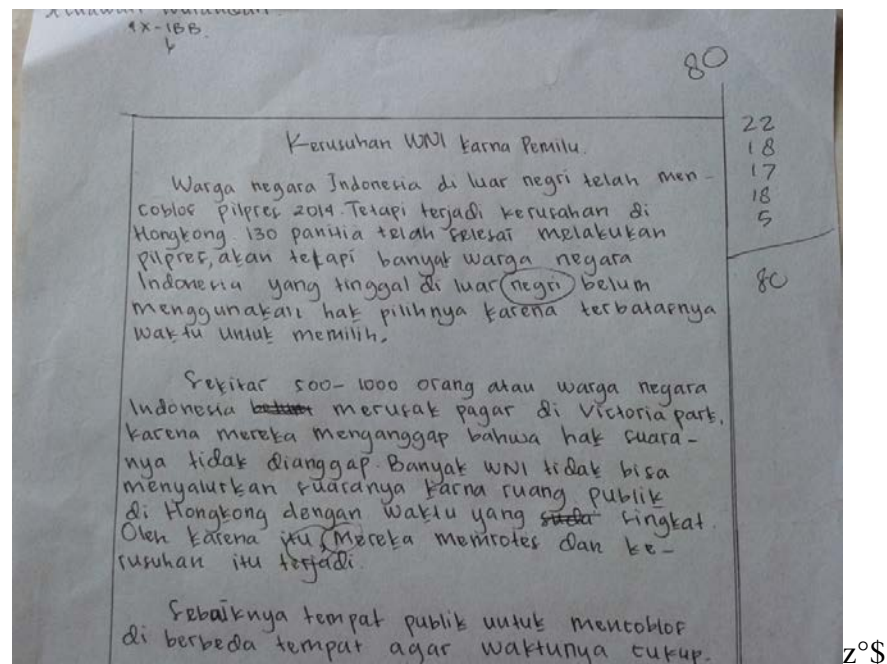 1X-1BB
80
22
18
17
18
5
80
Kerusuhan WNI karna Pemilu.
Warga negara Indonesia di luar negri telah men-
coblos pilpres 2014. Tetapi terjadi kerusahan di
Hongkong 130 panitia telah selesai melakukan
pilpres, akan tetapi banyak warga negara
Indonesia yang tinggal di luar negri belum
menggunakan hak pilihnya karena terbatasnya
waktu untuk memilih.
Sekitar 500-1000 orang atau warga negara
Indonesia merusak pagar di Victoria park,
karena mereka menganggap bahwa hak suara-
nya tidak dianggap. Banyak WNI tidak bisa
menyalurkan suaranya karna ruang publik
di Hongkong dengan waktu yang singkat.
Oleh karena itu Mereka memrotes dan ke-
rusuhan itu terjadi.
Sebaiknya tempat publik untuk mencoblos
di berbeda tempat agar waktunya cukup.
z°$